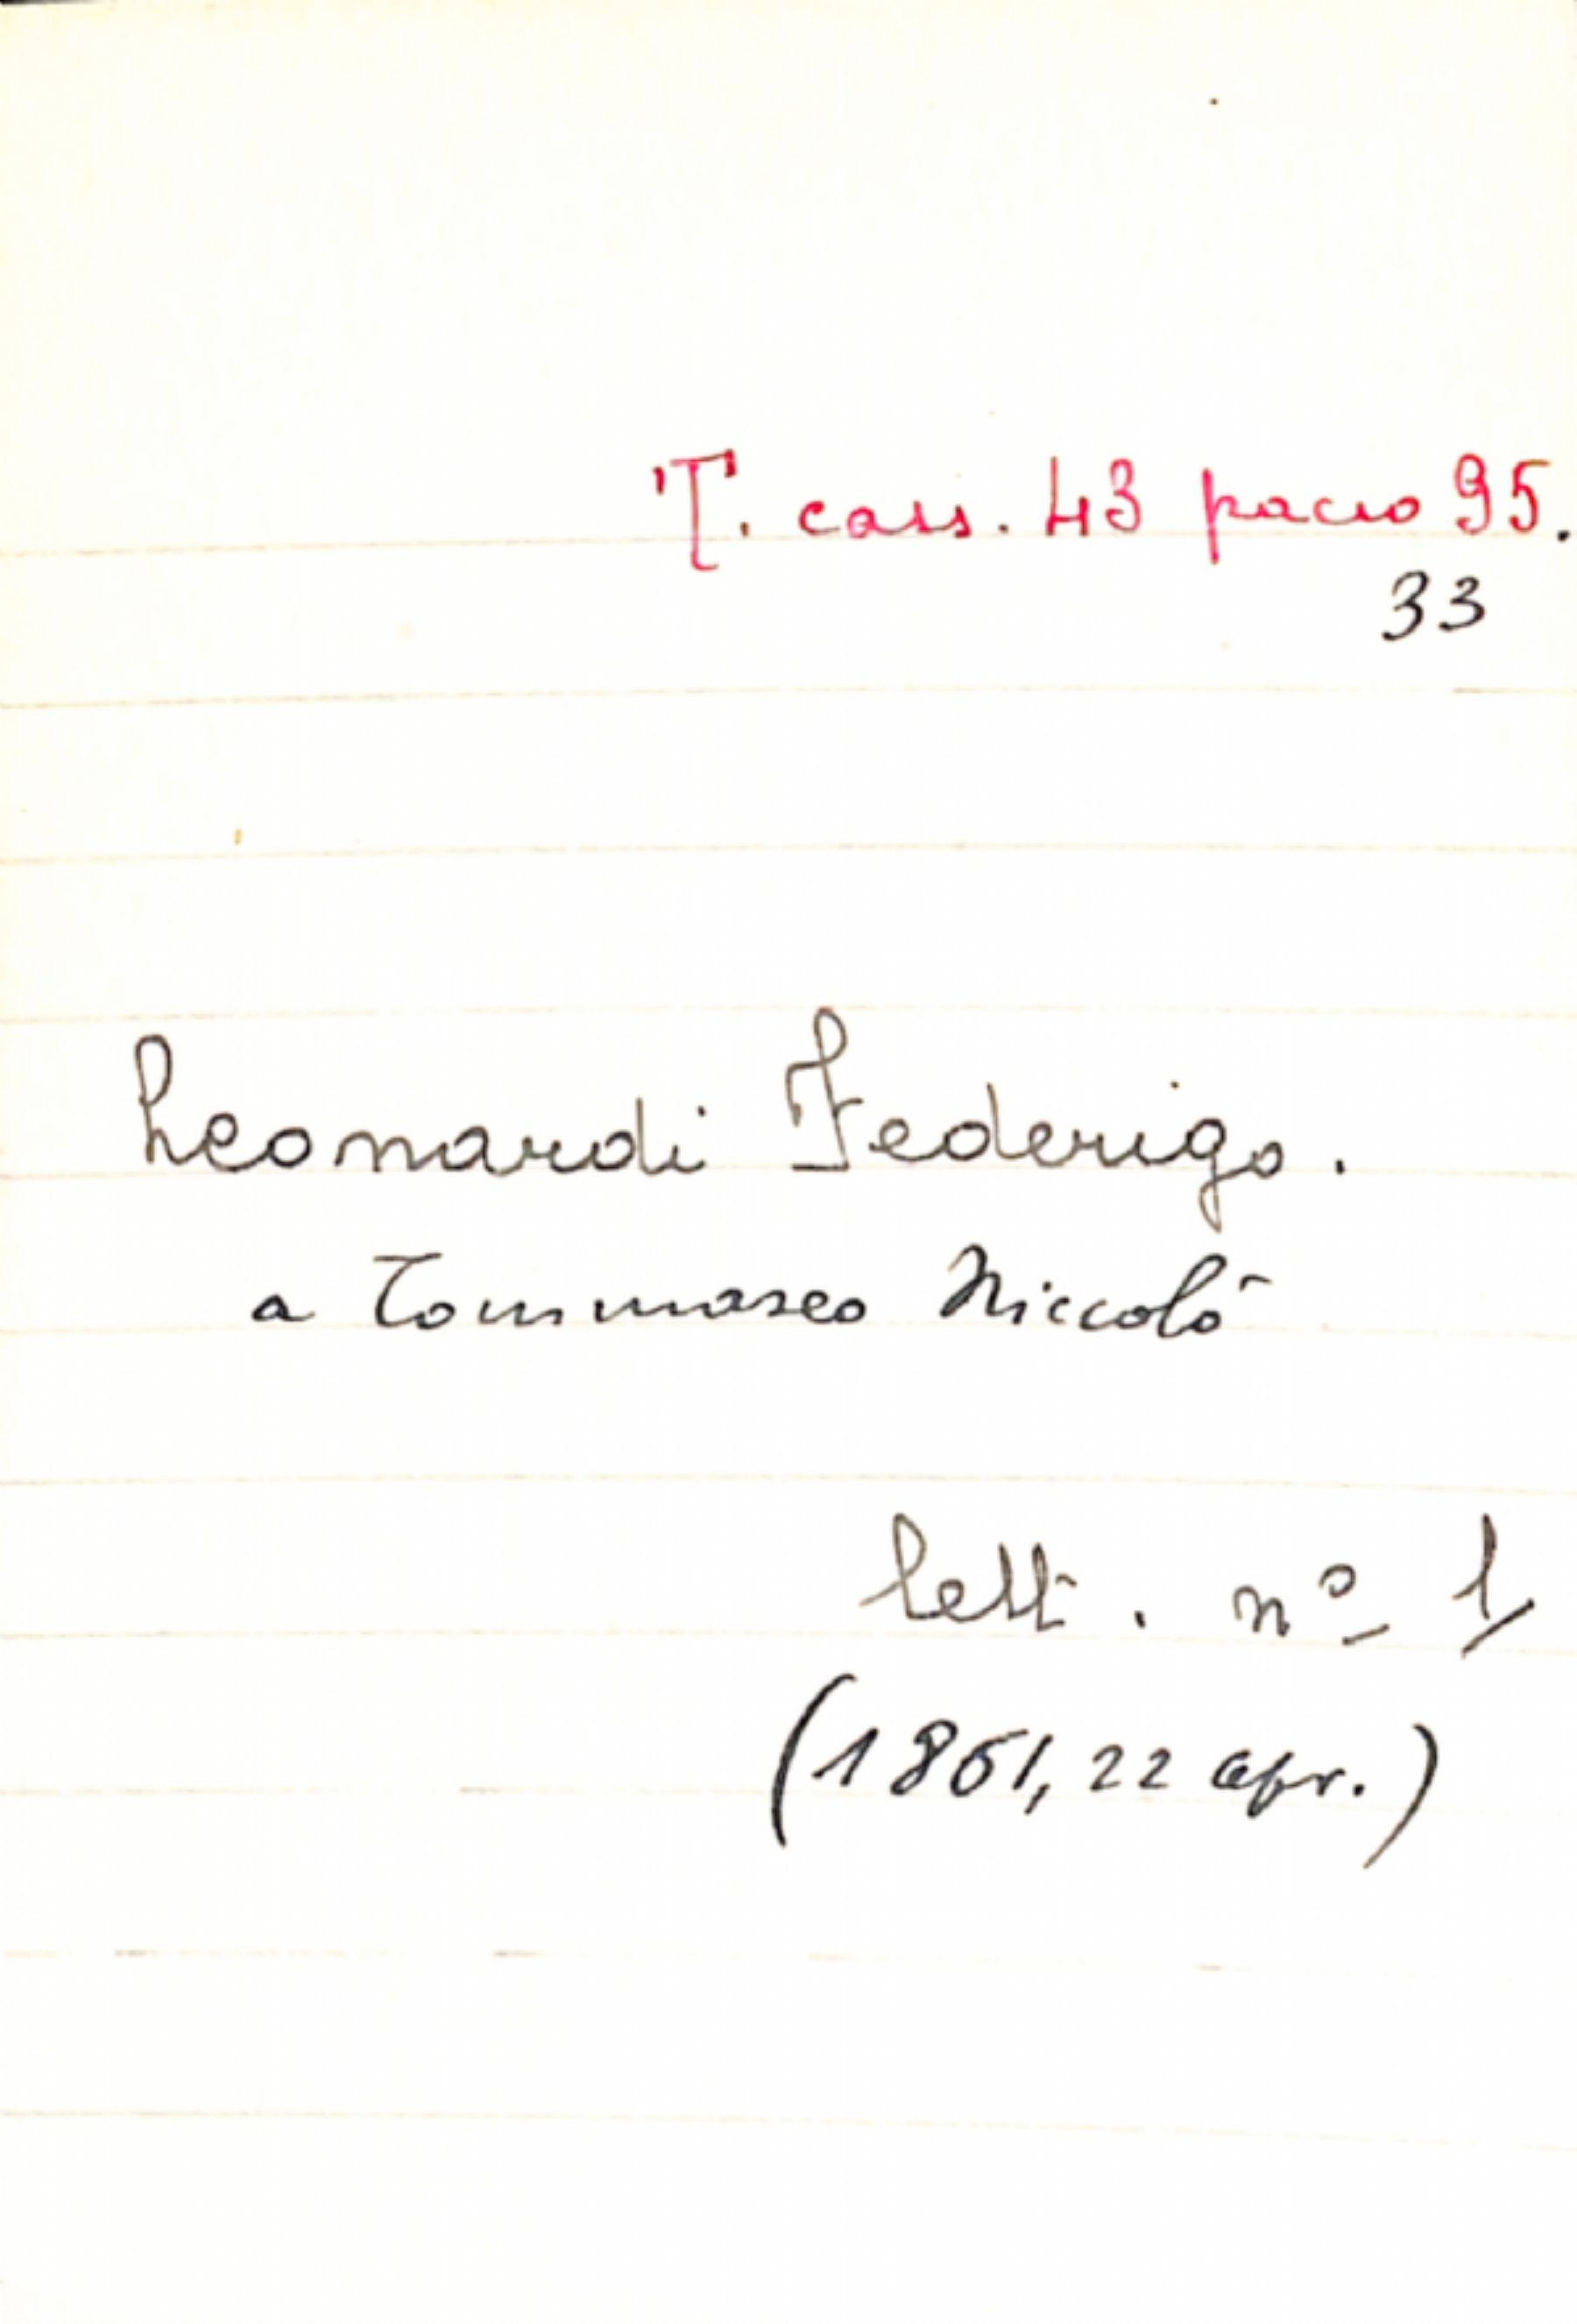 T. cass. 43 pacco 95.
33
Leonardi Federigo.
a Tommaseo Niccolò
lett. nº 1
(1861, 22 apr.)